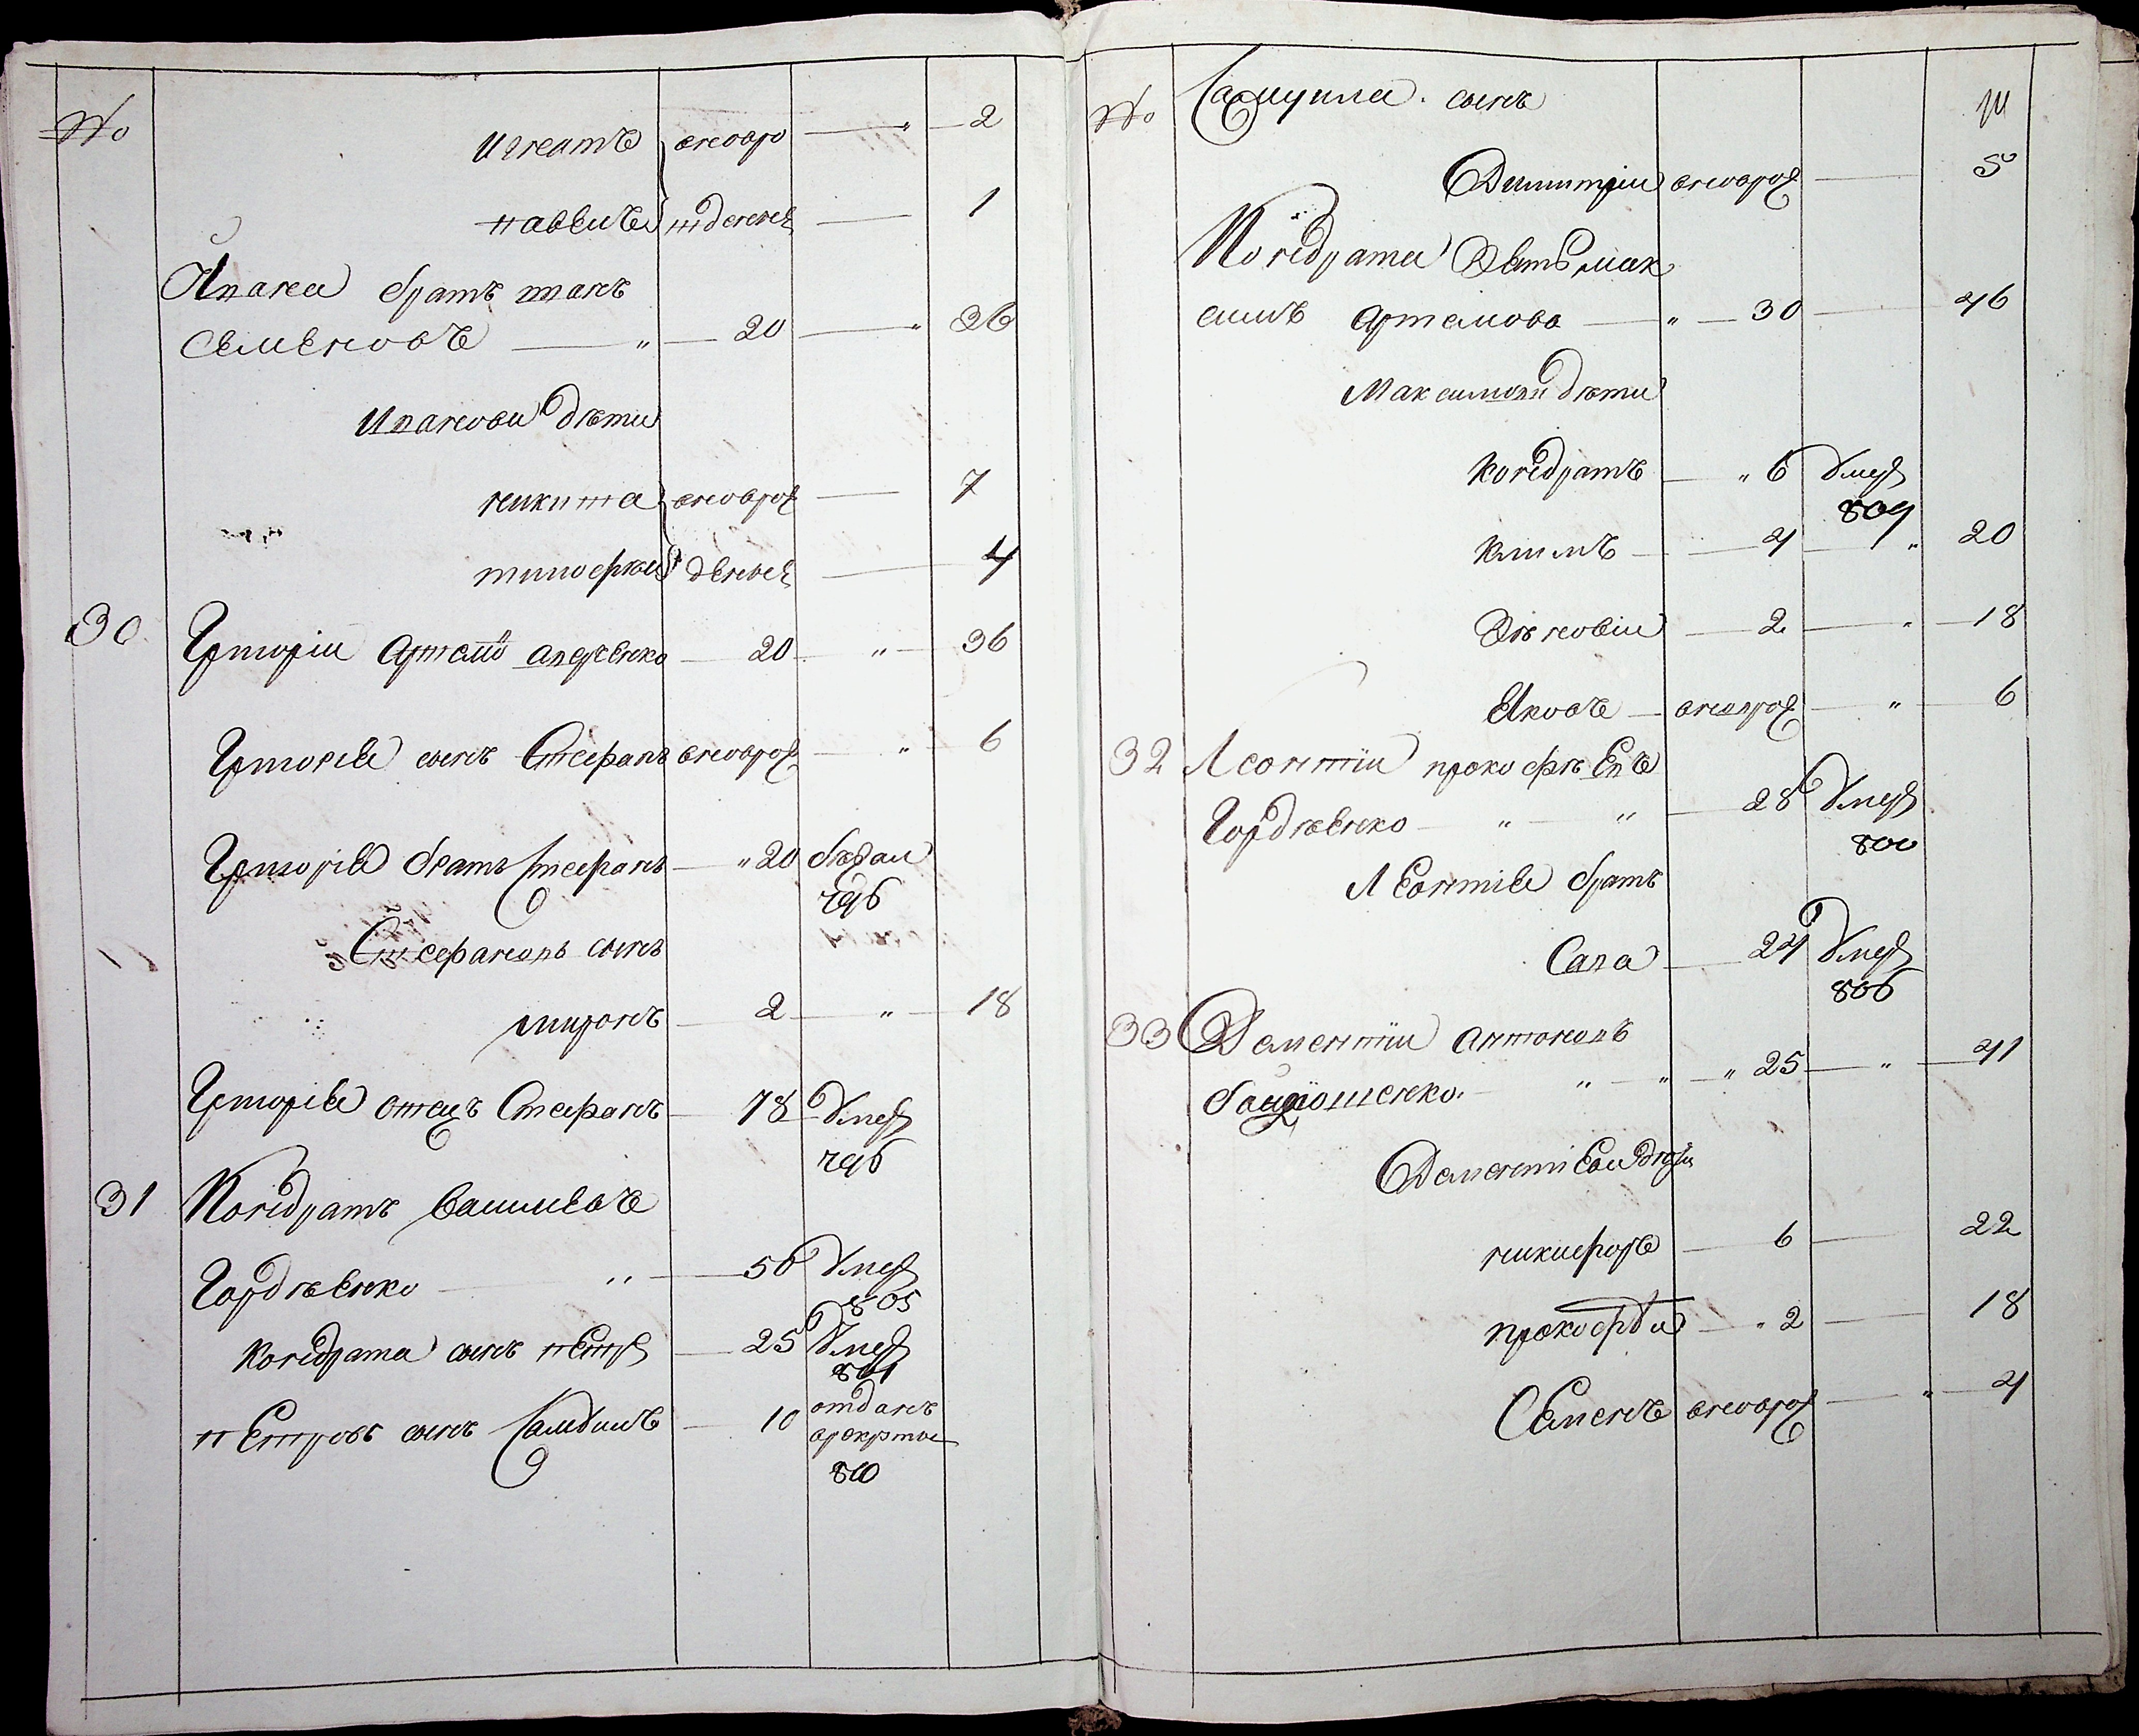 №
Игнатъ вновро " 2
павелъ жденей 1
Ивана братъ Иванъ
Семеновъ " 20 " 36
Ивановы дѣти
никита вноврож 7
тимофей денней 4
30 Григоріи Артемо 20 " 36
Григорія сынъ Стефанъ вноврож " 6
Григорія братъ Стефанъ " 20 бѣжал
796
Стефановъ сынъ
миронъ 2 " 18
Григорія отецъ Стефанъ 78 Умер
796
31 Кондратъ Василевъ
Гордѣенко " 50 Умер
805
Кондрата сынъ петр 25 Умер
801
петровъ сынъ Самуилъ 10 отданъ
врекрты
810
№ Самуила сынъ
Димитріи вноврож 5
Кондрата зять мак
симъ Артемова " 30 46
Максимови дѣти
Кондратъ " 6 Умер
809
Климъ 4 " 20
Зѣновіи 2 " 18
Яковъ вноврож " 6
32 Леонтіи прокофѣевъ
Гордѣенко " " 28 Умер
800
Леонтія братъ
Сава 24 Умер
806
33 Дементіи Антоновъ
" " " 25 " 41
Дементіеви дѣти
никифоръ 6 22
прокофѣи " 2 18
Семенъ вноврож " 4